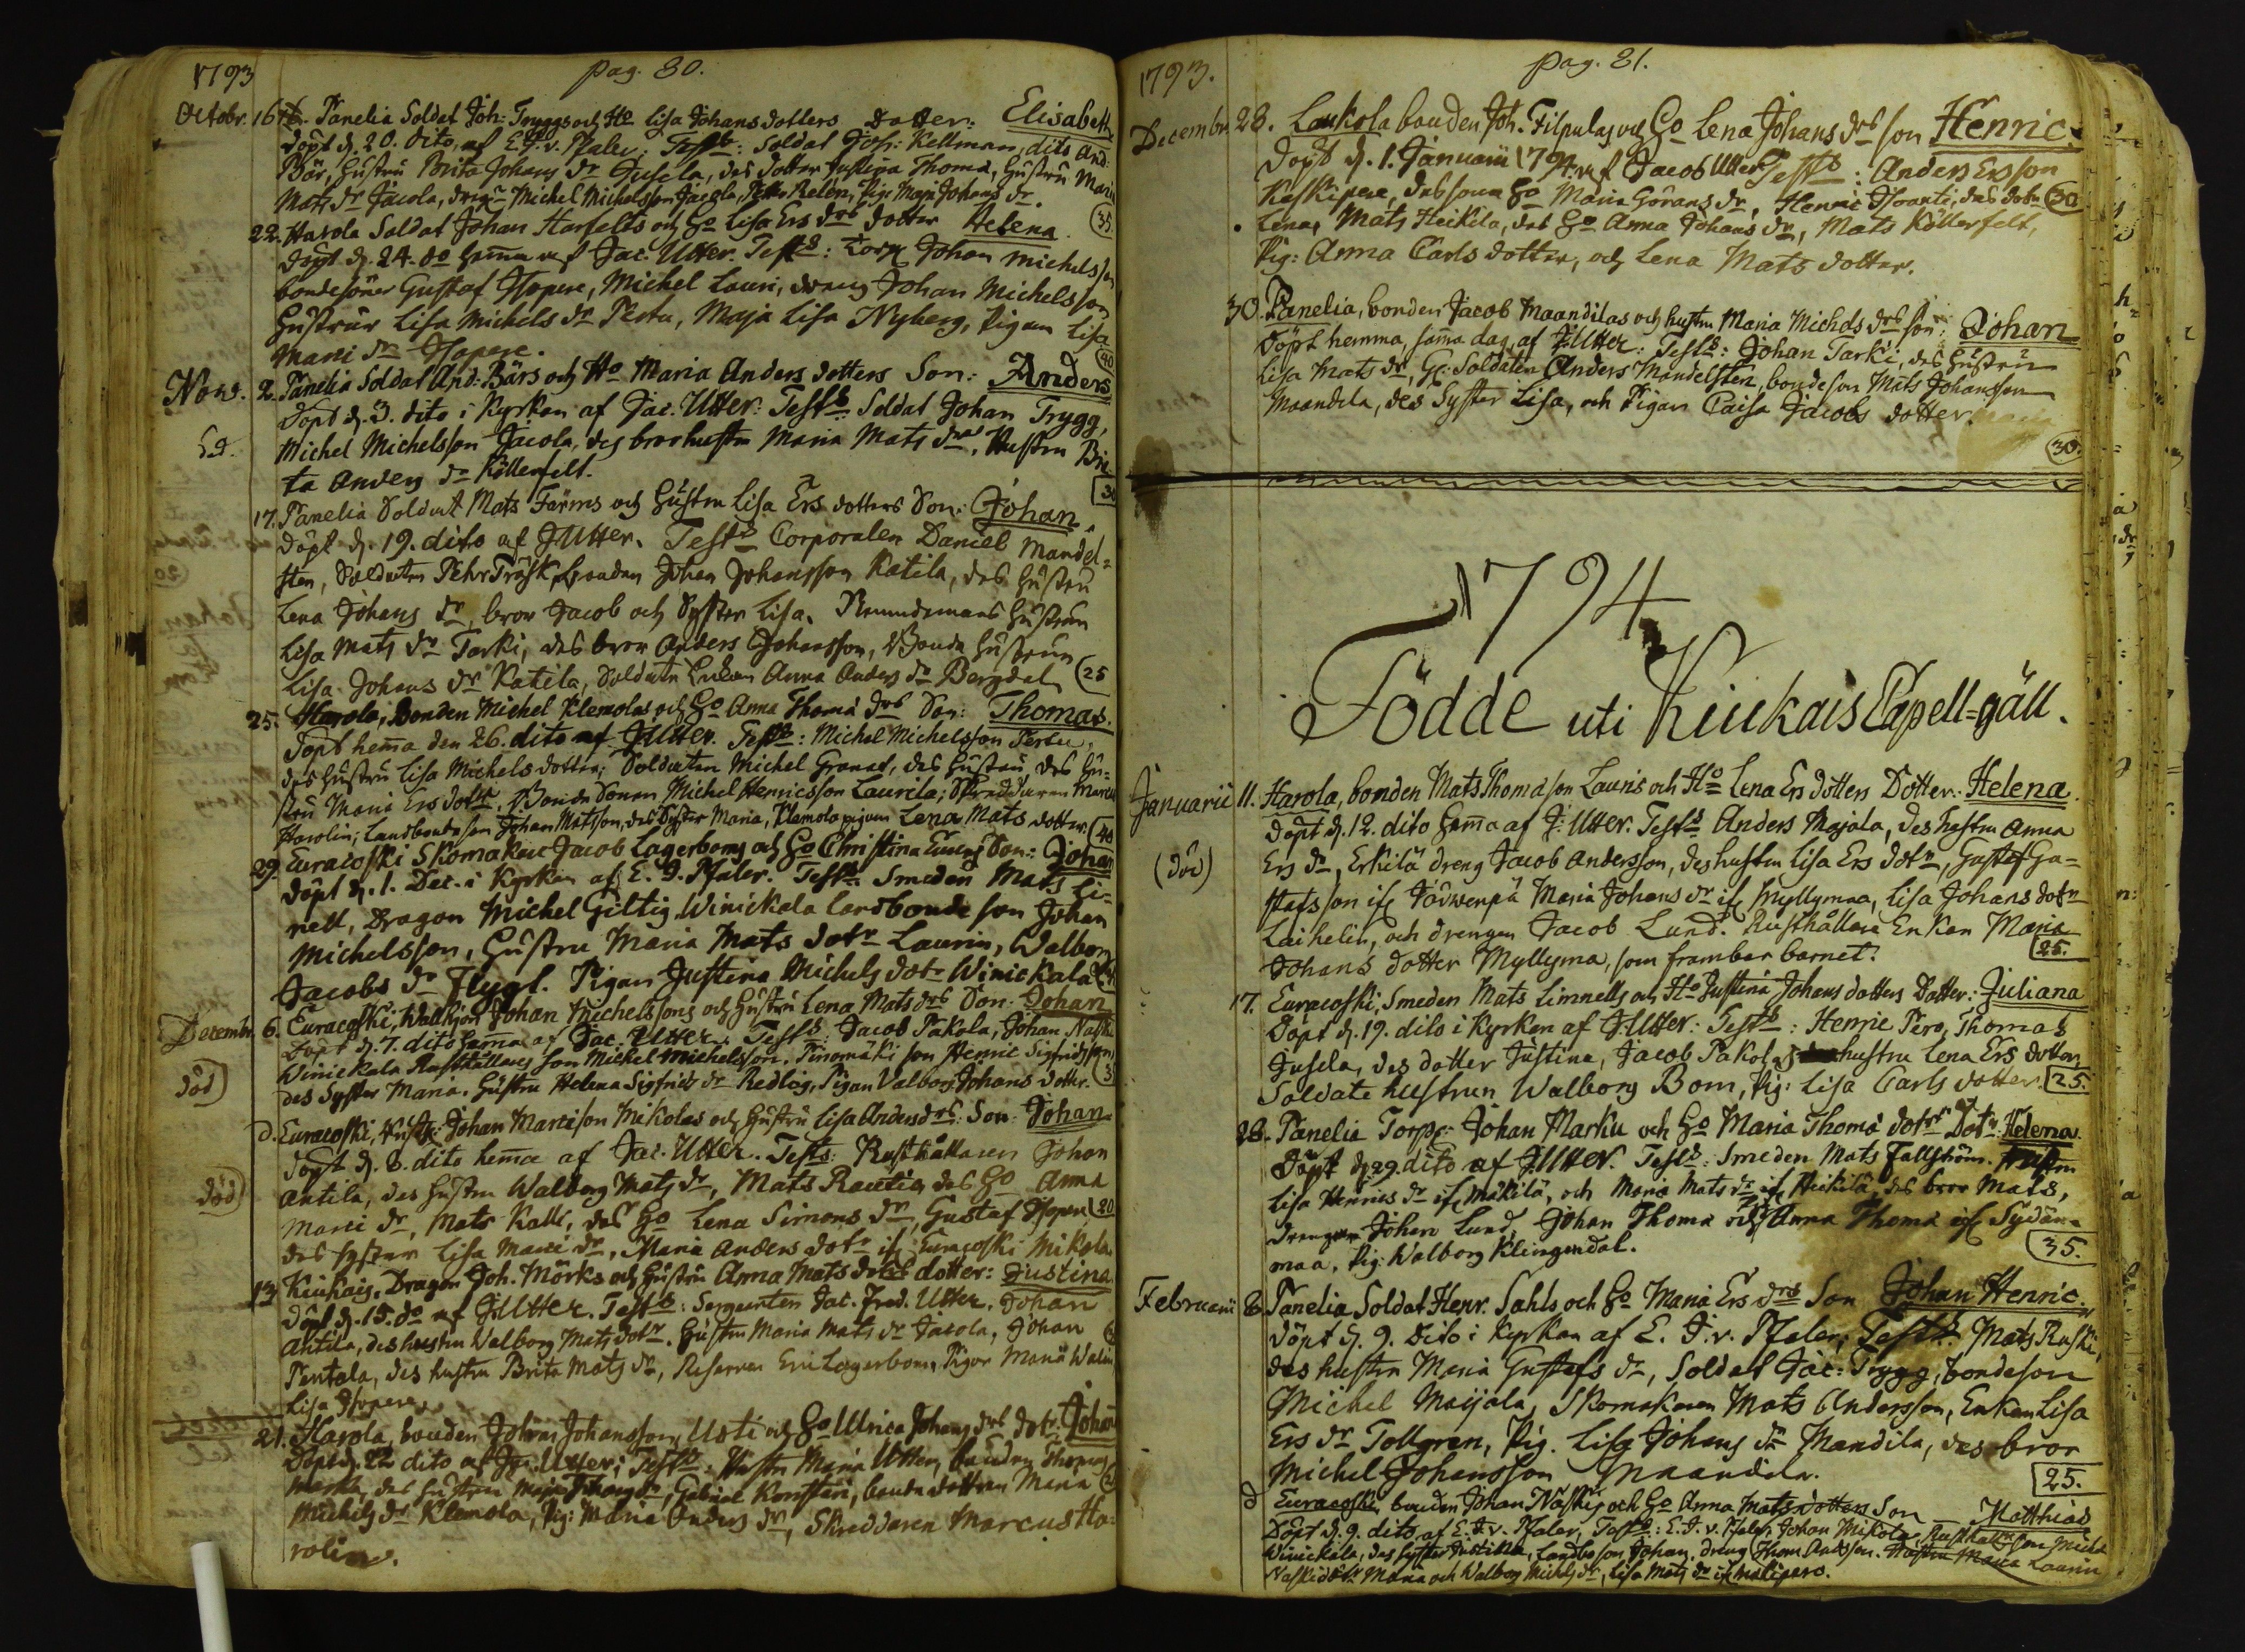 1793
pag. 80.
Octobr. 16. Panelia Soldat Joh: Tryggs och Ho Lisa Johansdotters Dotter: Elisabeth
Döpt d. 20. dito, af E. J. v. Pfaler. Test: Soldat Joh: Kellman, dito And:
Bär, Hustru Brita Johans dr Jusela, des dotter Justina Thoma, Hustru Maria
Mats dr Jacola, Michel Michelsson Jacola, Pig: Maja Johans dr.
35.
22. Harola Soldat Johan Harfelts och Ho Lisa Ers drs dotter Helena
Döpt d. 24. do hemma af Jac. Utter. Tests: Torp Johan Michelsson
bondesöner Gustaf Isopere, Michel Lauri, dreng Johan Michelsson
Hustrur Lisa Michels dr Pertu, Maja Lisa Nyberg, Pigan Lisa
Marci dr Isopere.
40
Nov. 2. Panelia Soldat And: Bärs och Ho Maria Anders dotters Son: Anders
Döpt d. 3. dito i Kyrkan af Jac. Utter: Tests: Soldat Johan Trygg,
Michel Michelsson Jacola, des brorhustru Maria Mats dr, Hustru Bri-
ta Anders dr Köllerfelt.
30
17. Panelia Soldat Mats Färms och Hustru Lisa Ers dotters Son: Johan
Döpt d. 19. dito af J Utter. Tests Corporalen Daniel Mandel=
sten, Soldaten Pehr Träsk, bonden Johan Johansson Katila, des Hustru
Lena Johans dr, bror Jacob och Syster Lisa. Hustrun
Lisa Mats dr Tarki, des bror Anders Johansson, Bonde Hustrun
Lisa Johans dr Katila, Soldate Enkan Anna Anders dr Bergdal
25
25. Harola, Bonden Michel Klemolas och Ho Anna Thoma drs Son: Thomas.
Döpt hema den 26. dito af J Utter. Tests: Michel Michelsson Pertu,
des hustru Lisa Michelsdotter, Soldaten Michel Granat, des Hustru des Hu-
stru Maria Ers dotr, Bonde Sonen Michel Henricsson Laurila; Skreddaren Marcus
Harolin; Landbondeson Johan Matsson, des Syster Maria, Klemola pigan Lena Mats dotter.
40
29. Euracoski Skomakare Jacob Lagerboms och Ho Christina Son: Johan
Döpt d. 1. Dec. i Kyrkan af E. J. Pfaler. Tests. Smeden Mats Li-
nell, Dragon Michel Giltig, Winickala landbonde son Johan
Michelsson, Hustru Maria Mats dotr Laurin, Walborg
Jacobs dr Flygt. Pigan Justina Michels dotr Winickala
Decembr. 6. Euracoski, Johan Michelssons och Hustru Lena Mats drs Son: Johan
Döpt d. 7. dito hemma af Jac. Utter. Tests: Jacob Pakola, Johan Naski
Winickala Rusthållares son Michel Michelsson. Tinomäki son Henric Sigfridsson
des Syster Maria. Hustru Helena Sigfrids dr Redlig, Pigan Valborg Johans dotter.
död
d. Euracoski, Johan Martison Mikolas och Hustru Lisa Anders drs: Son: Johan
Döpt d. 8. dito hema af Jac. Utter. Tests: Rusthållaren Johan
Antila, des Hustru Walborg Mats dr, Mats Rautia, des Ho Anna
död
Marci dr, Mats Kalli, des Ho Lena Simons dr, Gustaf Isopere
20
des syster Lisa Marci dr, Maria Anders dotr if Euracoski Mikola
13. Kiukais, Dragon Joh. Mörks och Hustru Anna Mats dotrs dotter: Justina
Döpt d. 15. do af J Utter. Tests: Sergeanten Jac. Fred. Utter, Johan
Antila, des hustru Walborg Mats dotr. Hustru Maria Mats dr Jacola, Johan
Pentala, des hustru Brita Mats dr, Lagerbom, Pigor Maria
Lisa Isopere
21. Harola, bonden Johan Johansson Usti och Ho Ulrica Johans drs Dotr: Johan
Döpt d. 22 dito af Jac. Utter; Tests: Hustru Maria Utter, bonden Thomas
Marki, des hustru Maja Johans dr, Gabriel Konsteri, bonde dottren Maria
Michels dr Klemola, Pig: Maria Anders dr, Skreddaren Marcus Ha-
rolin.
1793.
pag. 81.
Decembr. 28. Laukola bonden Joh. Filpulas och Ho Lena Johans drs son Henric.
Döpt d. 1. Januarii 1794 af Jacob Utter Tests: Anders Ersson
Kaskipere, des Ho Maria Görans dr, Henric Isoanti, des dotr
30
Lena, Mats Heikila, des Ho Anna Johans dr, Mats Köllerfelt,
Pig: Anna Carls dotter, och Lena Mats dotter.
30. Panelia, bonden Jacob Maandilas och hustru Maria Michels drs son: Johan
Döpt hemma, samma dag, af J Utter: Tests: Johan Tarki, des Hustru
Lisa Mats dr, Soldaten Anders Mandelsten, bondeson Mats Johansson
Maandila, des Syster Lisa, och Pigan Caisa Jacobs dotter.
30.
1794
Födde uti Kiukais Capell=gäll.
Januarii 11. Harola, bonden Mats Thomasson Lauris och Ho Lena Ers dotters Dotter: Helena
Döpt d. 12. dito hemma af J: Utter. Tests Anders Majala, des hustru Anna
(död)
Ers dr, Erkilä dreng Jacob Andersson, des hustru Lisa Ers dotr, Gustaf Gu=
stafsson if Järwenpä Maria Johans dr if Myllymaa, Lisa Johans dotr
Laihelin, och drengen Jacob Lund. Rusthållare Enkan Maria
Johans dotter Myllyma, som frambar barnet.
25.
17. Euracoski, Smeden Mats Limnells och Ho Justina Johans dotters Dotter: Juliana
Döpt d. 19. dito i Kyrkan af J. Utter: Tests: Henric Pero, Thomas
Jusela, des dotter Justina, Jacob Pakolas hustru Lena Ers dotter,
Soldate hustrun Walborg Bom, Pig: Lisa Carls dotter.
25.
28. Panelia Torpp: Johan Marku och Ho Maria Thoma dotrs Dotr: Helena.
Döpt d. 29. dito af J. Utter. Tests: Smeden Mats Fallström. Hustru
Lisa Henrics dr if Mäkilä, och Maria Mats dr if Heikilä, des bror Mats,
drengen Johan Lund, Johan Thoma och Anna Thoma if Sydän-
maa, Pig: Walborg Klingendal.
35.
Februarii 8. Panelia Soldat Henr. Sahls och Ho Maria Ers drs Son Johan Henric.
Döpt d. 9. Dito i Kyrkan af E. J. v. Pfaler; Tests: Mats Raski,
des hustru Maria Gustafs dr, Soldat Jac: Trygg, bondeson
Michel Maijala, Skomakaren Mats Andersson, Enkan Lisa
Ers dr Tollgren, Pig. Lisa Johans dr Mandila, des bror
Michel Johansson Maandila.
25.
d Euracoski, bonden Johan Naskis och Ho Anna Mats dotters Son Matthias
Döpt d. 9. dito af E. J. v. Pfaler, Tests: E. J. v. Pfaler. Johan Mikola, Rusthållr Son Michel
Winickala, des syster Justina, Landbo son Johan, dreng Thom Andsson. Hustru Maria Laurin
Naski dotr Maria och Walborg Michels dr, Lisa Mats dr if